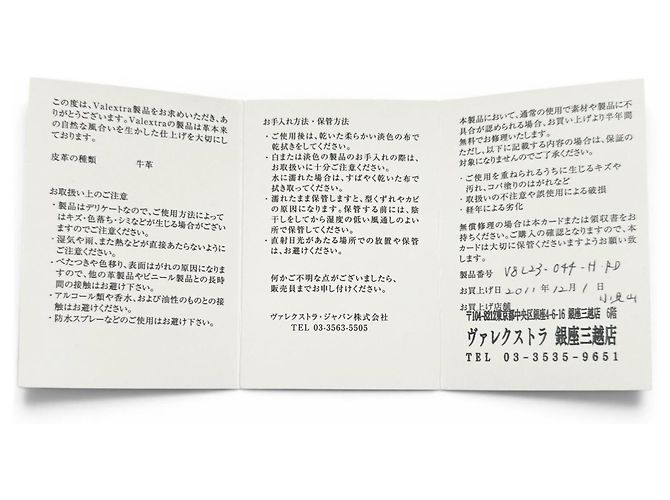 この度は、Valextra製品をお求めいただき、あ
りがとうございます。Valextraの製品は革本来
の自然な風合いを生かした仕上げを大切にし
ております。
皮革の種類　　牛革
お取扱い上のご注意
・製品はデリケートなので、ご使用方法によって
はキズ・色落ち・シミなどが生じる場合がござい
ますのでご注意ください。
・湿気や雨、また熱などが直接あたらないように
ご注意ください。
・べたつきや色移り、表面はがれの原因になりま
すので、他の革製品やビニール製品との長時
間の接触はお避け下さい。
・アルコール類や香水、および油性のものとの接
触はお避けください。
・防水スプレーなどのご使用はお避け下さい。
お手入れ方法・保管方法
・ご使用後は、乾いた柔らかい淡色の布で
乾拭きをしてください。
・白または淡色の製品のお手入れの際は、
お取扱いに十分ご注意ください。
水に濡れた場合は、すばやく乾いた布で
拭き取ってください。
・濡れたまま保管しますと、型くずれやカビ
の原因になります。保管する前には、陰
干しをしてから湿度の低い風通しのよい
所で保管してください。
・直射日光があたる場所での放置や保管
は、お避けください。
何かご不明な点がございましたら、
販売員までお申し付けください。
ヴァレクストラ・ジャパン株式会社
TEL 03-3563-5505
本製品において、通常の使用で素材や製品に不
具合が認められる場合、お買い上げより半年間
無料でお修理いたします。
ただし、以下に記載する内容の場合は、保証の
対象になりませんのでご了承ください。
・ご使用を重ねられるうちに生じるキズや
汚れ、コバ塗りのはがれなど
・取扱いの不注意や誤使用による破損
・経年による劣化
無償修理の場合は本カードまたは領収書をお
持ちください。ご購入の確認となりますので、本
カードは大切に保管くださいますようお願い致
します。
製品番号　V8L23-044-H-RD
お買上げ日 2011年 12月 1日
お買上げ店舗
〒104-8212東京都中央区銀座4-6-16 銀座三越店 6階
ヴァレクストラ 銀座三越店
TEL 03-3535-9651